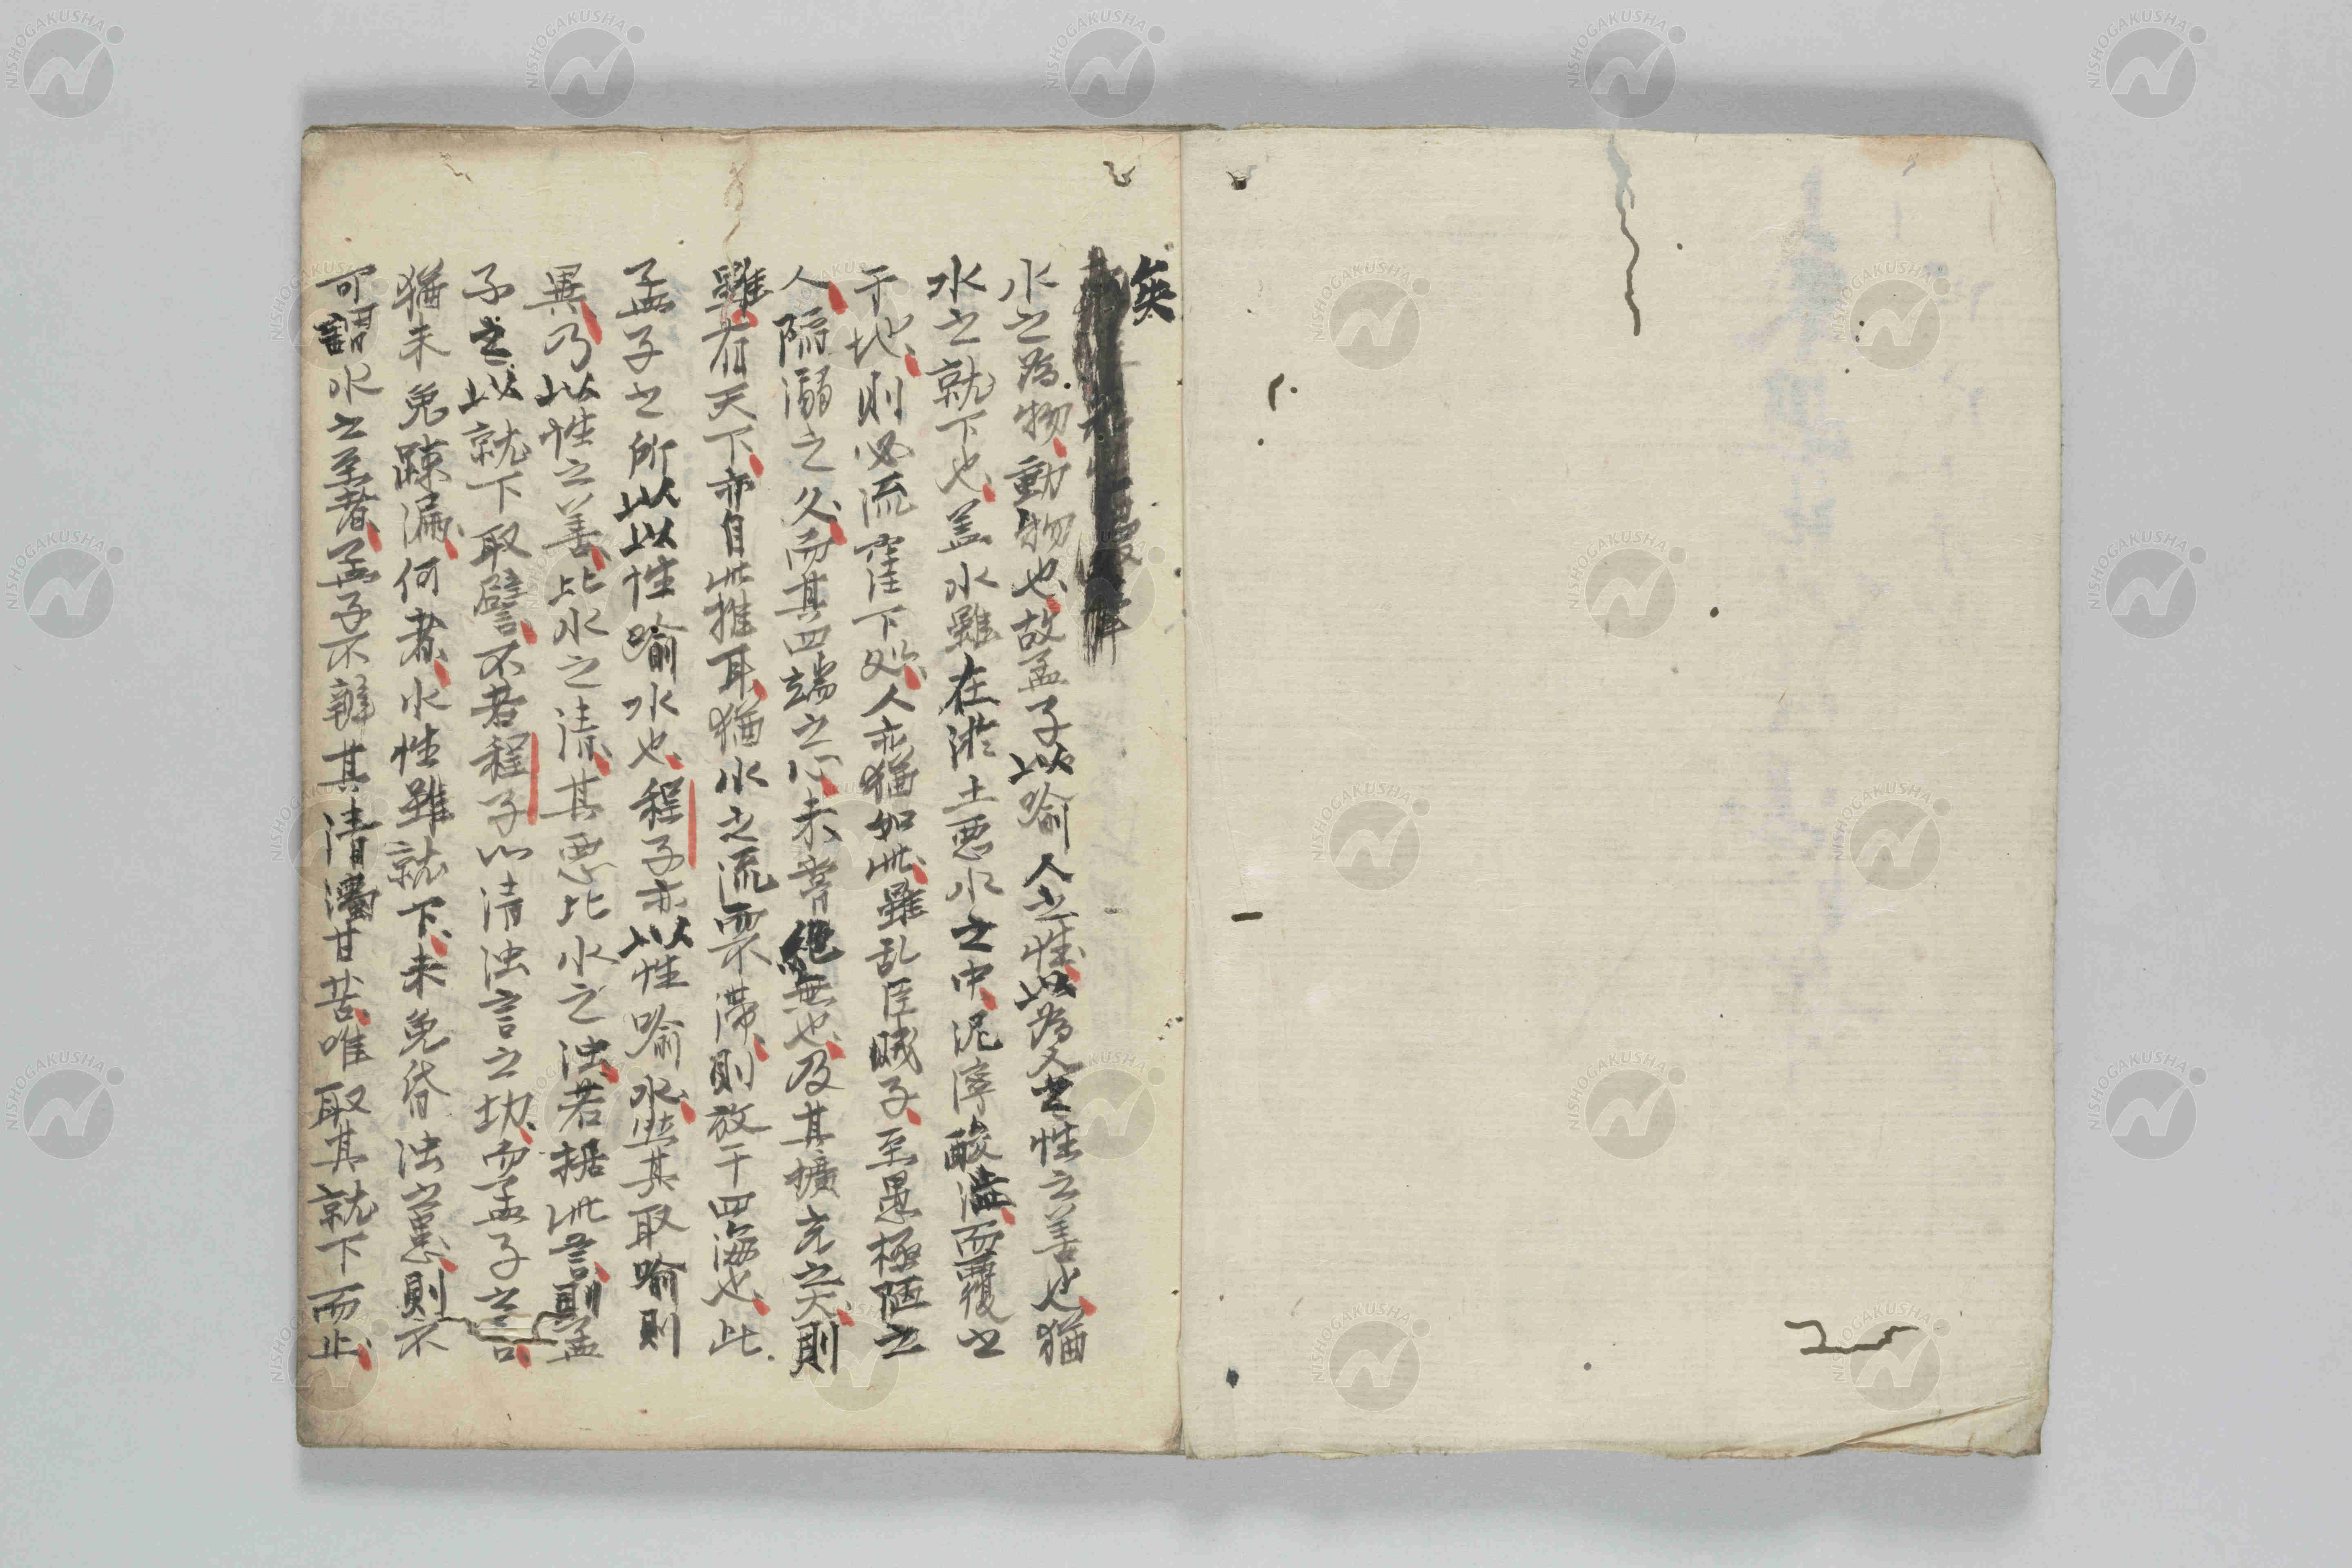 矣
水之為物、動物也、故孟子以喻人之性、以為人之性之善也、猶
水之就下也、盖水雖在淤土悪水之中、泥滓酸溢、而覆之
于地、則必流窪下処、人亦猶如此、雖乱臣賊子、至愚極陋之
人、陷溺之久、而其四端之心、未嘗絶無也、及其擴充之矣、則
雖有天下、亦自此推耳、猶水之流而不滞、則放于四海也、此
孟子之所以以性喻水也、程子亦以性喻水、然其取喻則
異、乃以性之善、比水之清、其悪比水之浊、若据此言、則孟
子之以就下取譬、不若程子以清浊言之切、而孟子之言、
猶未免踈漏、何者、水性雖就下、未免昏浊之悪、則不
可謂水之至者、孟子不辨其清濁甘苦、唯取其就下而止、
NISHOGAKUSHA